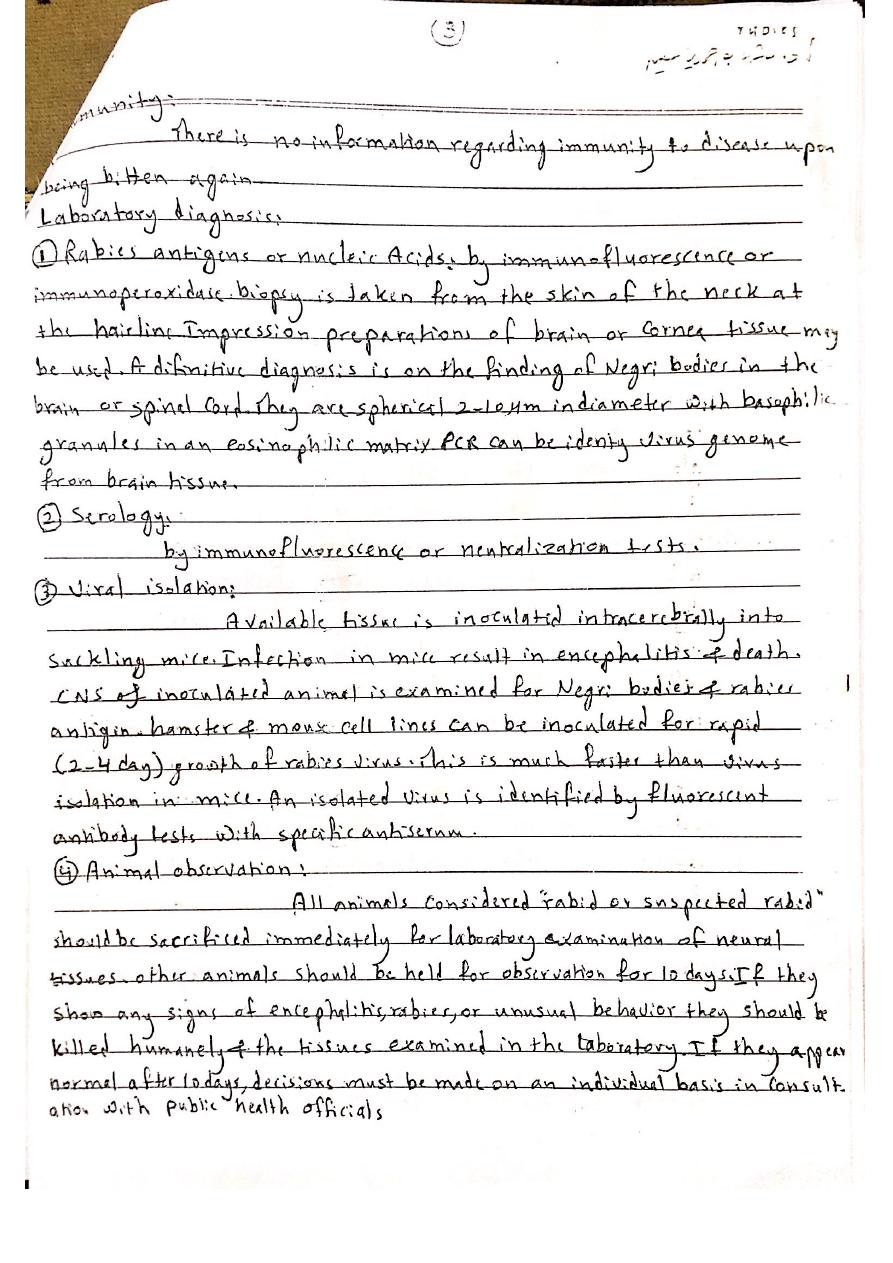 (3)
munity:
There is no information regarding immunity to disease upon
being bitten again
Laboratory diagnosis:
① Rabies antigens or nucleic Acids: by immunofluorescence or
immunoperoxidase. biopsy is taken from the skin of the neck at
the hairline Impression preparations of brain or Cornea tissue may
be used. A difinitive diagnosis is on the finding of Negri bodies in the
brain or spinel Cord. They are spherical 2-10 μm in diameter with basophilic
granules in an eosinophilic matrix PCR can be identy virus genome
from brain tissue.
② Serology:
by immunofluorescence or neutralization tests.
③ Viral isolation:
Available tissue is inoculated intracerebrally into
suckling mice. Infection in mice result in encephalitis & death.
CNS of inoculated animal is examined for Negri bodies & rabies
antigin. hamster & mouse cell lines can be inoculated for rapid
(2-4 day) growth of rabies virus. This is much faster than virus
isolation in mice. An isolated virus is identified by fluorescent
antibody tests with specific antiserum.
④ Animal observation:
All animals considered "rabid or suspected rabid"
should be sacrificed immediately for laboratory examination of neural
tissues. other animals should be held for observation for 10 days. If they
show any signs of encephalitis, rabies, or unusual behavior they should be
killed humanely & the tissues examined in the laboratory. If they appear
normal after 10 days, decisions must be made on an individual basis in Consult-
ation with public health officials